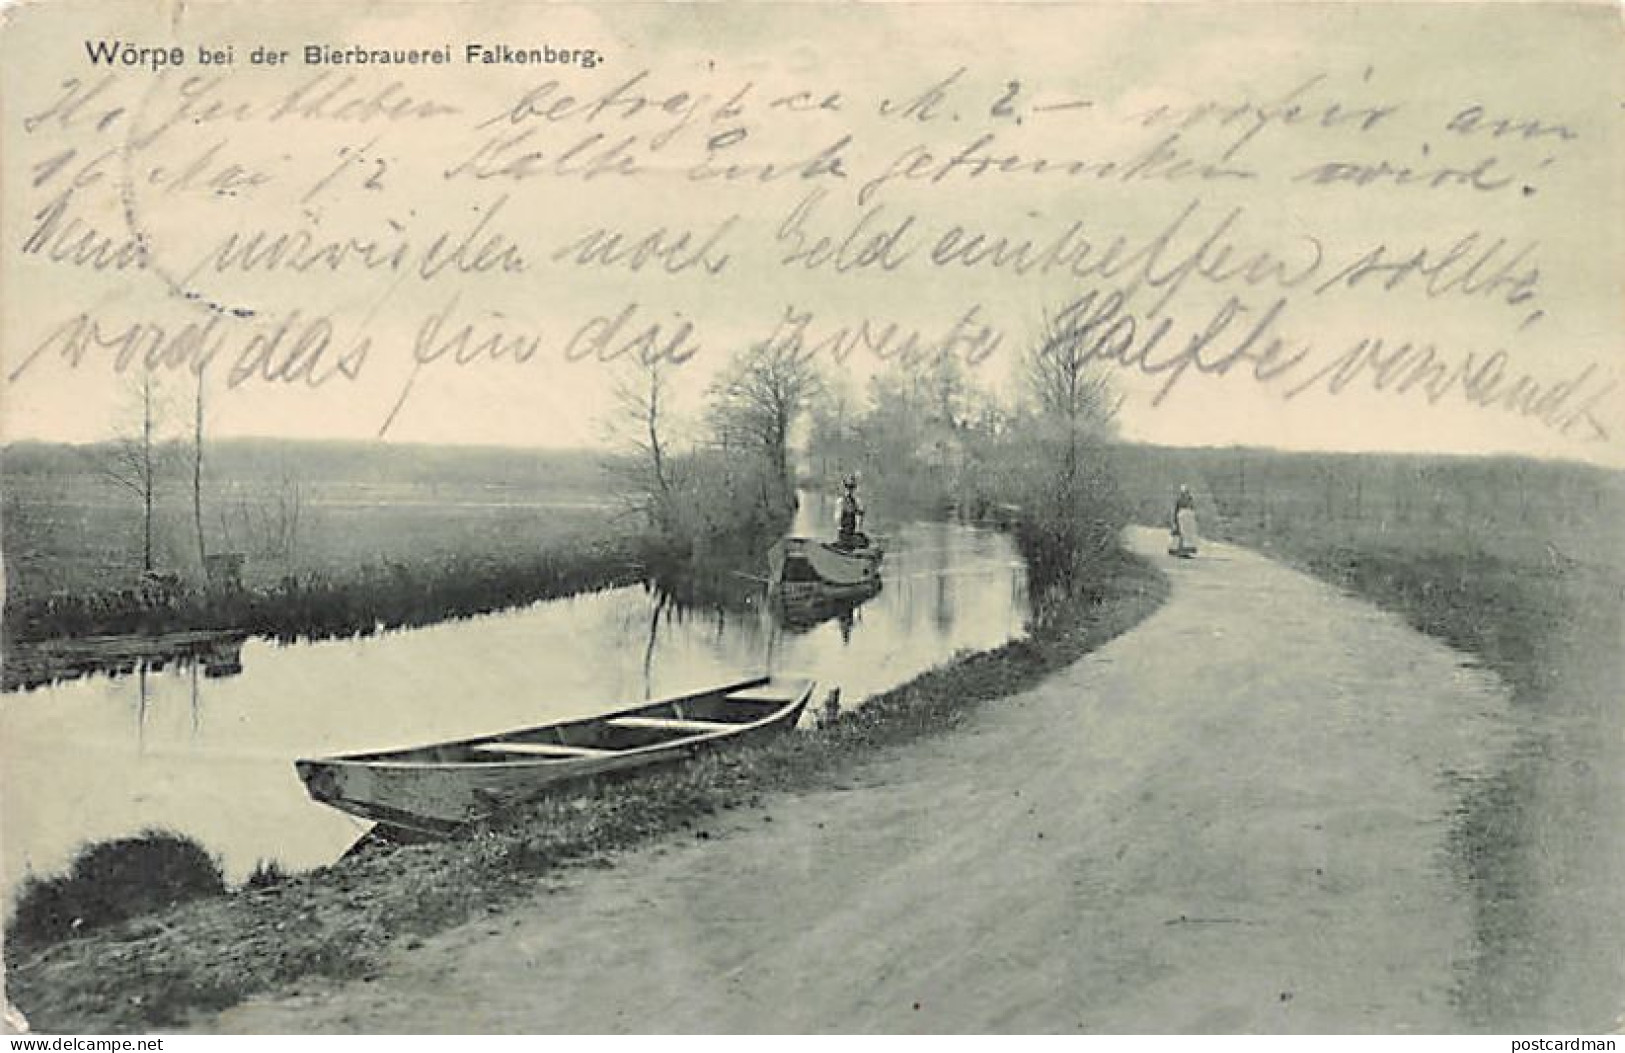 Wörpe bei der Bierbrauerei Falkenberg.
Ihr Guthaben betragt ca M. 2.— wofür am
16 Mai 1/2 Kalte Ente getrunken wird.
Wenn inzwischen noch Geld eintreffen sollte,
wird das für die zweite Haelfte verwandt
www.delcampe.net
postcardman